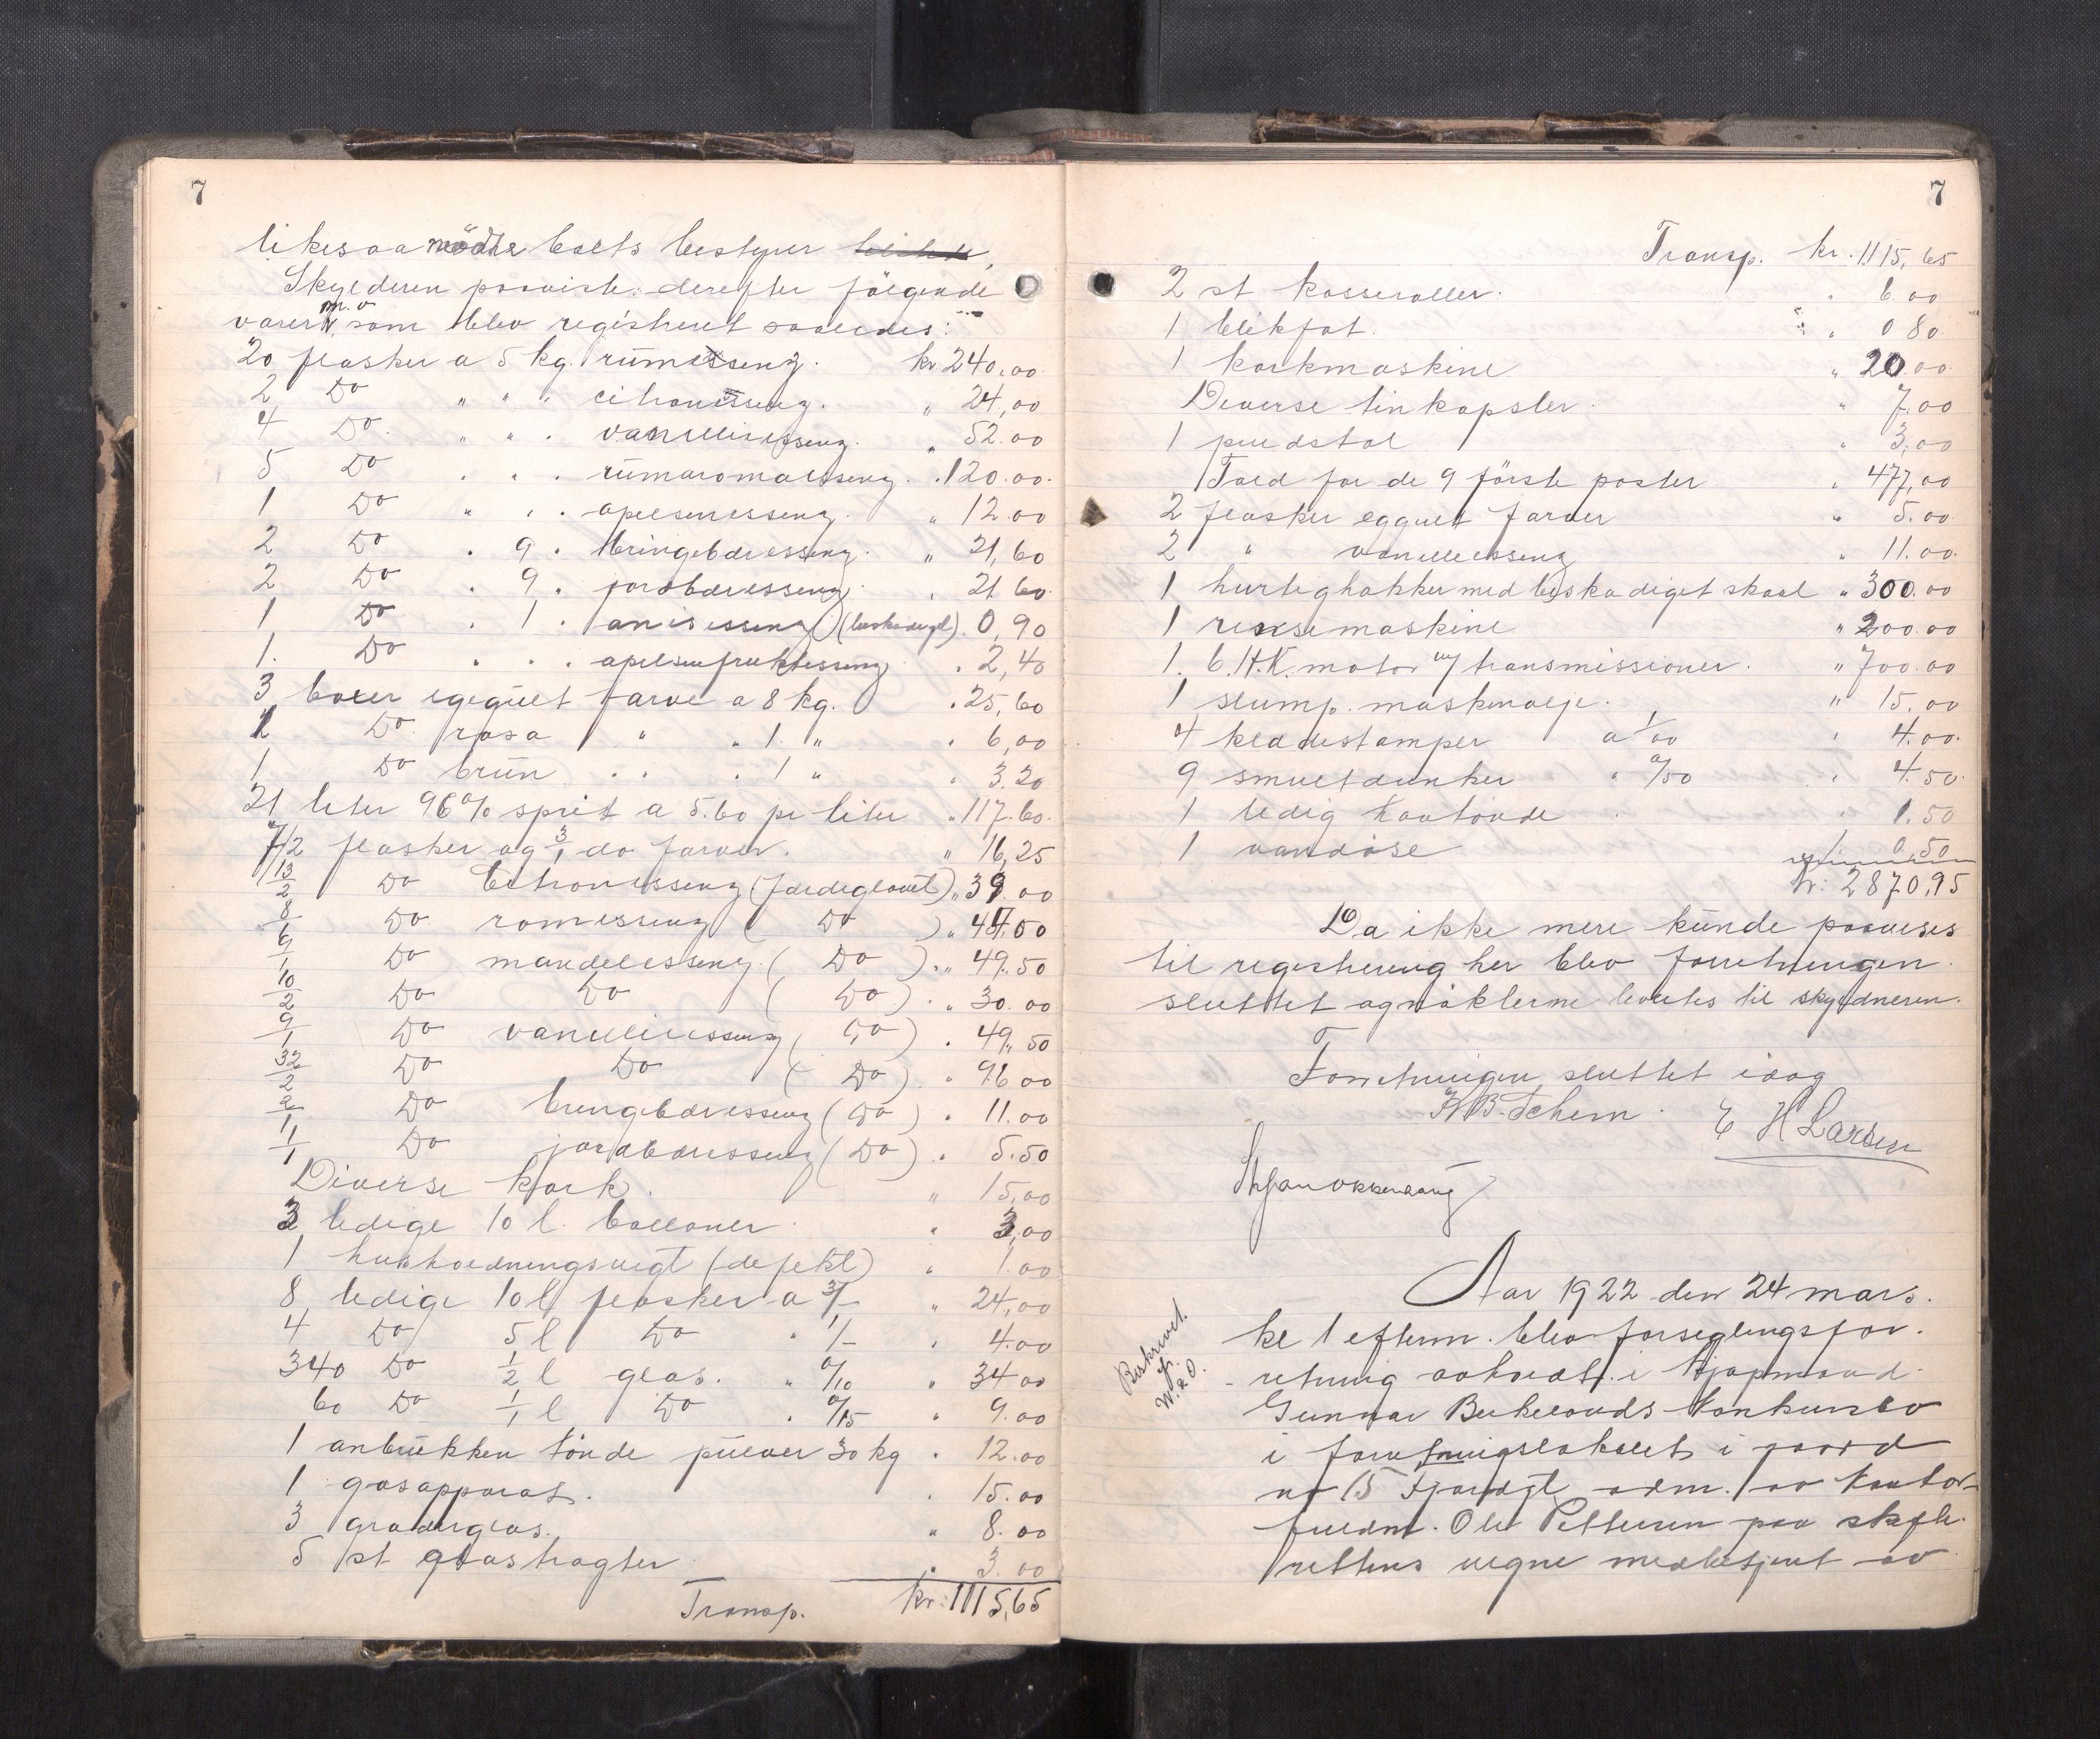 7
likesaa mødte boets bestyrer
Skylderen paaviste derefter følgende
varer m.v. som blev registreret saaledes:
20 flasker a 5 kg. rumessens. kr 240,00
2 Do " " " citronessens. " 24,00
4 Do " " " vanilleessens. " 52.00
5 Do " " " rumaromaessens. " 120.00
1 Do " " " apelsinessens. " 12.00
2 Do " 9 " bringebæressens. " 21,60
2 Do " 9 " jordbæressens " 21 60
1 Do " 1 " anisessens (beskadiget) " 0,90
1. Do " " " apelsinfruktessens " 2,40
3 boxer eggult farve a 8 kg. " 25,60
1 Do rosa " " 1 " " 6,00
1 Do brun " " 1 " " 3.20
21 liter 96% sprit a 5.60 pr liter " 117.60
7/2 flasker og 3/1 do farver. " 16,25
13/2 Do Citronessens (færdiglavet) " 39.00
8/1 Do romessens ( Do ) " 44.00
9/1 Do mandelessens. ( Do ) " 49.50
10/2 Do Do ( Do ) " 30.00
9/1 Do vanilleessens ( Do ) " 49,50
32/2 Do Do ( Do ) " 96 00
2/1 Do bringebæressens ( Do ) " 11.00
1/1 Do jordbæressens ( Do ) " 5.50
Diverse kork " 15,00
3 ledige 10 l. balloner " 3,00
1 husholdningsvegt (defekt) " 1.00
8 ledige 10 l flasker a 3/- " 24,00
4 Do 5 l Do " 1/- " 4.00
340 Do 1/2 l glas. " 0/10 " 34 00
60 Do 1/1 l Do " 0/15 " 9.00
1 anbrukken tønde pulver 30 kg " 12.00
1 gasapparat. " 15.00
3 graderglas. " 8.00
5 st glastragter " 3.00
Transp. kr: 1115,65
7
Transp. kr. 1115,65
2 st kasseroller. " 6.00
1 blikfat. " 0 80
1 korkmaskine " 20.00
Diverse tinkapsler. " 7.00
1 puldstol " 3,00
Told for de 9 første poster " 477,00
2 flasker eggult farver " 5.00
2 " vanilleessens " 11.00
1 hurtighakker med beskadiget skaal " 300.00
1 rensemaskine " 200.00
1. 6. H.K. motor m/ transmissioner. " 700.00
1 slump. maskinolje. " 15.00
4 kladestamper a 1/00 " 4.00
9 smultdunker " 0/50 " 4.50
1 ledig tøntønde " 1.50
1 vandøse " 0,50
kr: 2870,95
Da ikke mere kunde paavises
til registrering her blev forretningen
sluttet og nøklerne levertes til skyldneren.
Forretningen sluttet idag
E H Larsen
Aar 1922 den 24 mars.
kl 1 efterm. blev forseglingsfor-
retning avholdt i kjøpmand
Gunnar Birkelands konkursbo
i forretningslokalet i gaard
nr 15 Fjordgt adm. av kontor-
fuldm. Ole Pettersen paa skifte-
rettens vegne medbetjent av
Beskrevet.